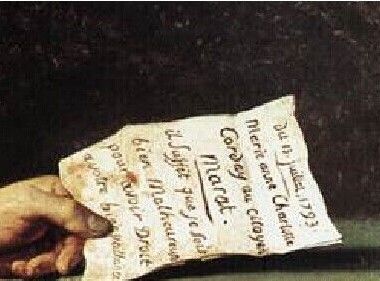 du 13 juillet, 1793
Marie anne Charlotte
Corday au citoyen
Marat.
il suffit que je sois
bien Malheureuse
pour avoir Droit
a votre bienveillance